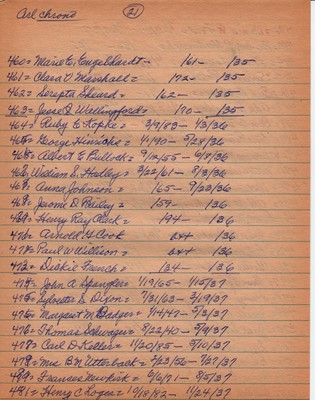 Arl chrono (21)
460 = Marie E. Engelhardt - 161 - 135
461 = Clara V. Marshall = 172 - 135
462 = Serepta Sheard = 162 - 135
463 = Jesse D. Wellingford = 170 - 135
464 = Ruby E. Kopke = 3/9/83 - 4/3/36
465 = George Hinrichs = 4/1/90 - 5/28/36
466 = Albert E. Bullock = 9/14/55 - 6/8/36
467 William S. Hadley = 3/22/61 - 8/3/36
468 = Anna Johnson = 165 - 9/23/36
468 = Jerome D. Bailey = 159 - 136
469 = Henry Ray Clark = 194 - 136
470 = Arnold H. Cook 136
472 = Paul W. Willison = 136
473 = Dickie French = 134 - 136
474 = John A. Spangler = 1/19/65 - 1/15/37
475 = Sylvester S. Dixon = 7/31/63 - 3/19/37
475 = Margaret M. Badger = 7/14/47 - 5/3/37
476 = Thomas Schwager = 8/22/40 - 5/9/37
477 = Carl D. Keller = 11/20/85 - 5/10/37
478 = Mrs B.N. Utterback = 2/22/56 - 7/27/37
479 = Frances Newkirk = 6/6/71 - 8/5/37
481 = Henry C. Loger = 10/18/82 - 11/24/37